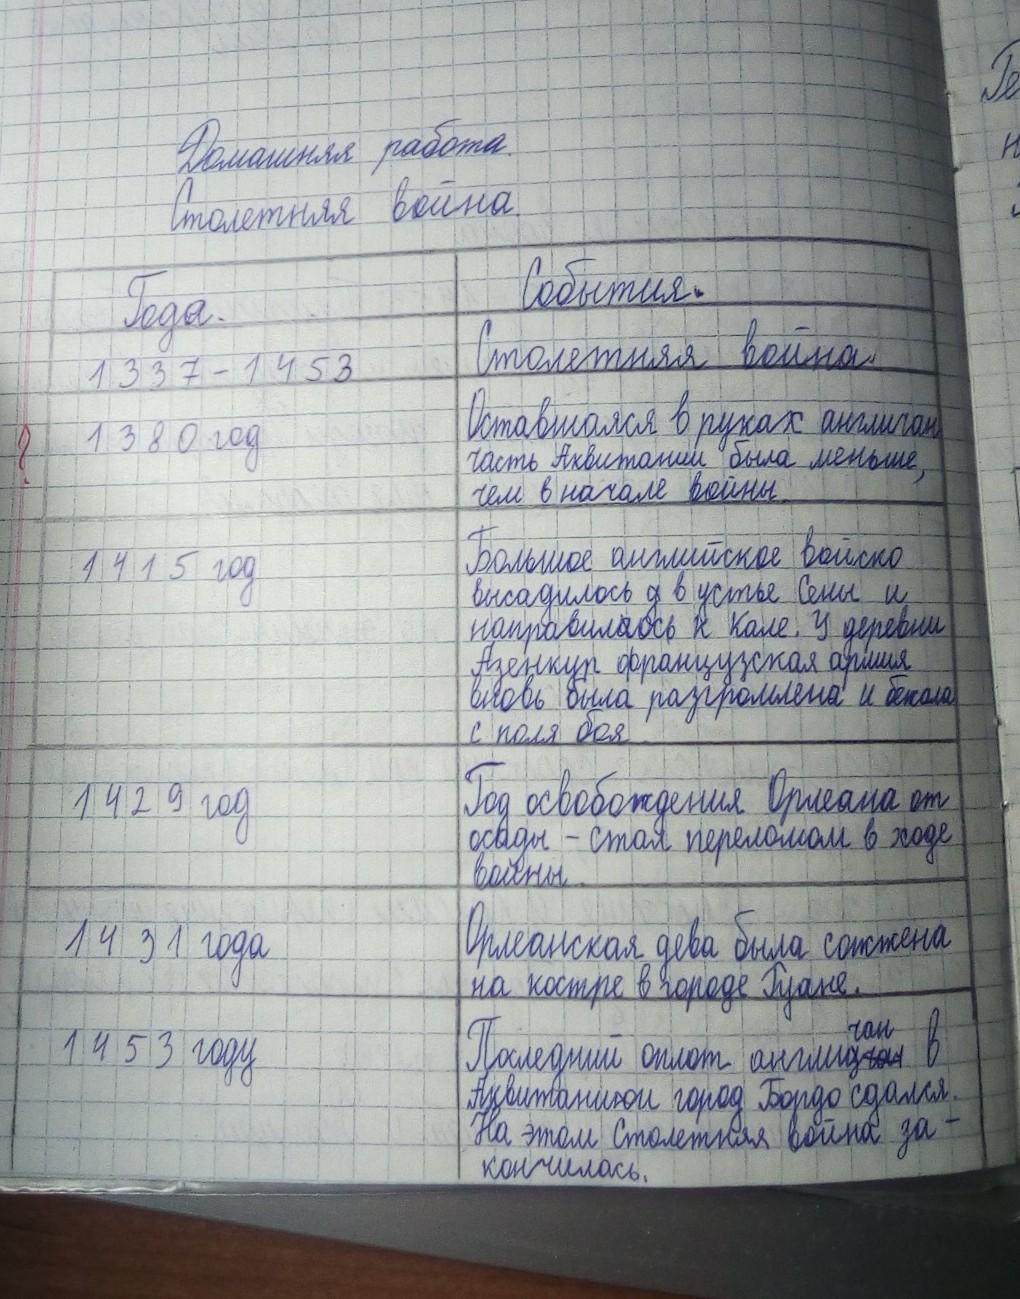 Домашняя работа.
Столетняя война.
Года.
События.
1337-1453
Столетняя война.
?
1380 год
Оставшаяся в руках англичан
часть Аквитании была меньше,
чем в начале войны.
1415 год
Большое английское войско
высадилось в устье Сены и
направилась к Кале. У деревни
Азенкур французская армия
вновь была разгромлена и бежала
с поля боя.
1429 год
Год освобождения Орлеана от
осады - стал переломом в ходе
войны.
1431 года
Орлеанская дева была сожжена
на костре в городе Руане.
1453 году
чан
Последний оплот англи в
город Бордо сдался.
На этом Столетняя война за-
кончилась.
Ге
н